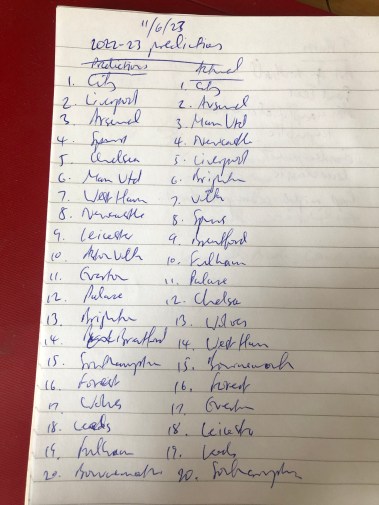 11/6/23
2022-23 predictions
Predictions Actual
1. City 1. City
2. Liverpool 2. Arsenal
3. Arsenal 3. Man Utd
4. Spurs 4. Newcastle
5. Chelsea 5. Liverpool
6. Man Utd 6. Brighton
7. West Ham 7. Villa
8. Newcastle 8. Spurs
9. Leicester 9. Brentford
10. Aston Villa 10. Fulham
11. Everton 11. Palace
12. Palace 12. Chelsea
13. Brighton 13. Wolves
14. Brentford 14. West Ham
15. Southampton 15. Bournemouth
16. Forest 16. Forest
17. Wolves 17. Everton
18. Leeds 18. Leicester
19. Fulham 19. Leeds
20. Bournemouth 20. Southampton